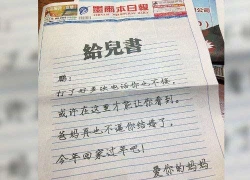 墨尔本日報
給兒書
鵬：
打了好多次电话你也不接，
或许在这里才能让你看到。
爸妈再也不逼你结婚了，
今年回家过年吧！
爱你的妈妈